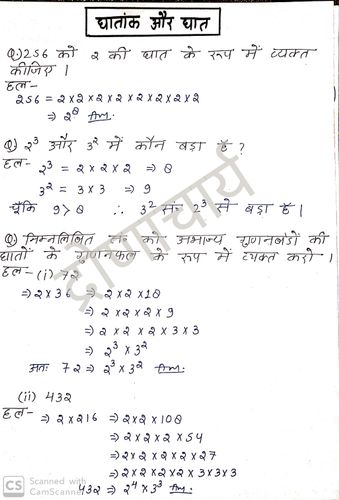 घातांक और घात
Q.) 256 को 2 की घात के रूप में व्यक्त
कीजिए।
हल-
256 = 2×2×2×2×2×2×2×2
⇒ 2⁸ Ans.
Q) 2³ और 3² में कौन बड़ा है?
हल- 2³ = 2×2×2 ⇒ 8
3² = 3×3 ⇒ 9
चूँकि 9>8 ∴ 3² सं० 2³ से बड़ा है।
Q) निम्नलिखित सं० को अभाज्य गुणनखंडों की
घातों के गुणनफल के रूप में व्यक्त करो।
हल- (i) 72
⇒ 2×36 ⇒ 2×2×18
⇒ 2×2×2×9
⇒ 2×2×2×3×3
⇒ 2³×3²
अतः 72 ⇒ 2³×3² Ans.
(ii) 432
हल- ⇒ 2×216 ⇒ 2×2×108
⇒ 2×2×2×54
⇒ 2×2×2×2×27
⇒ 2×2×2×2×3×3×3
432 ⇒ 2⁴×3³ Ans.
द्रोणाचार्य
CS Scanned with
CamScanner